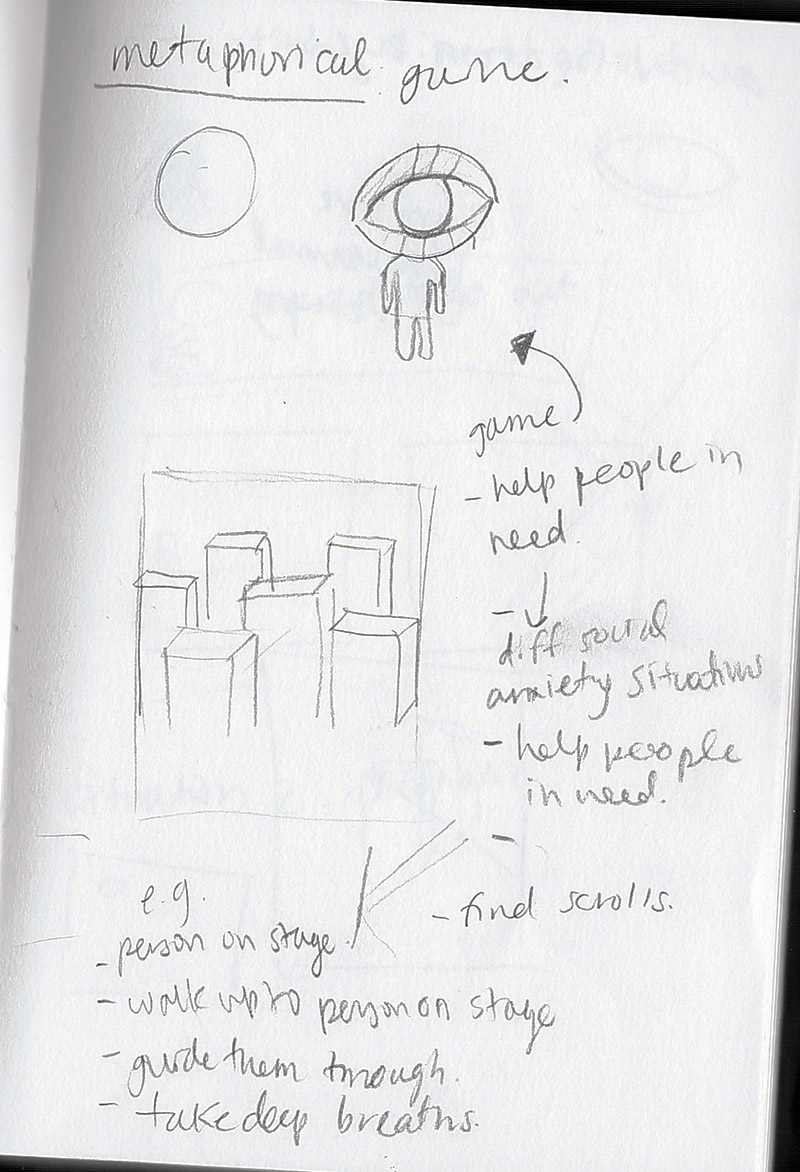 metaphorical game.
game
- help people in
need.
- ↓
diff social
anxiety situations
- help people
in need.
-
- find scrolls.
e.g.
- person on stage.
- walk up to person on stage
- guide them through.
- take deep breaths.